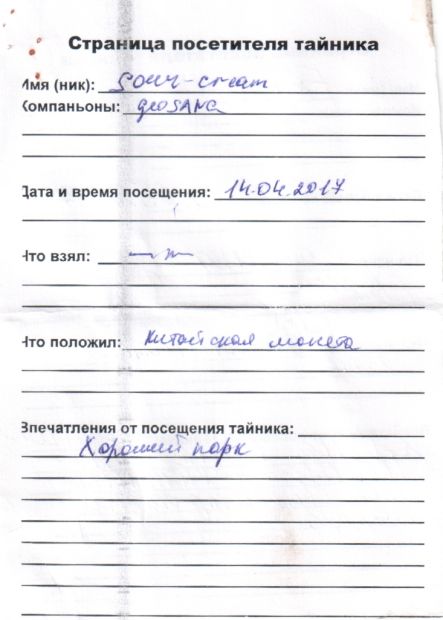 Страница посетителя тайника
Имя (ник): sour-cream
Компаньоны: geoSANG
Дата и время посещения: 14.04.2017
Что взял: —"—
Что положил: Китайская монета
Впечатления от посещения тайника:
Хороший парк